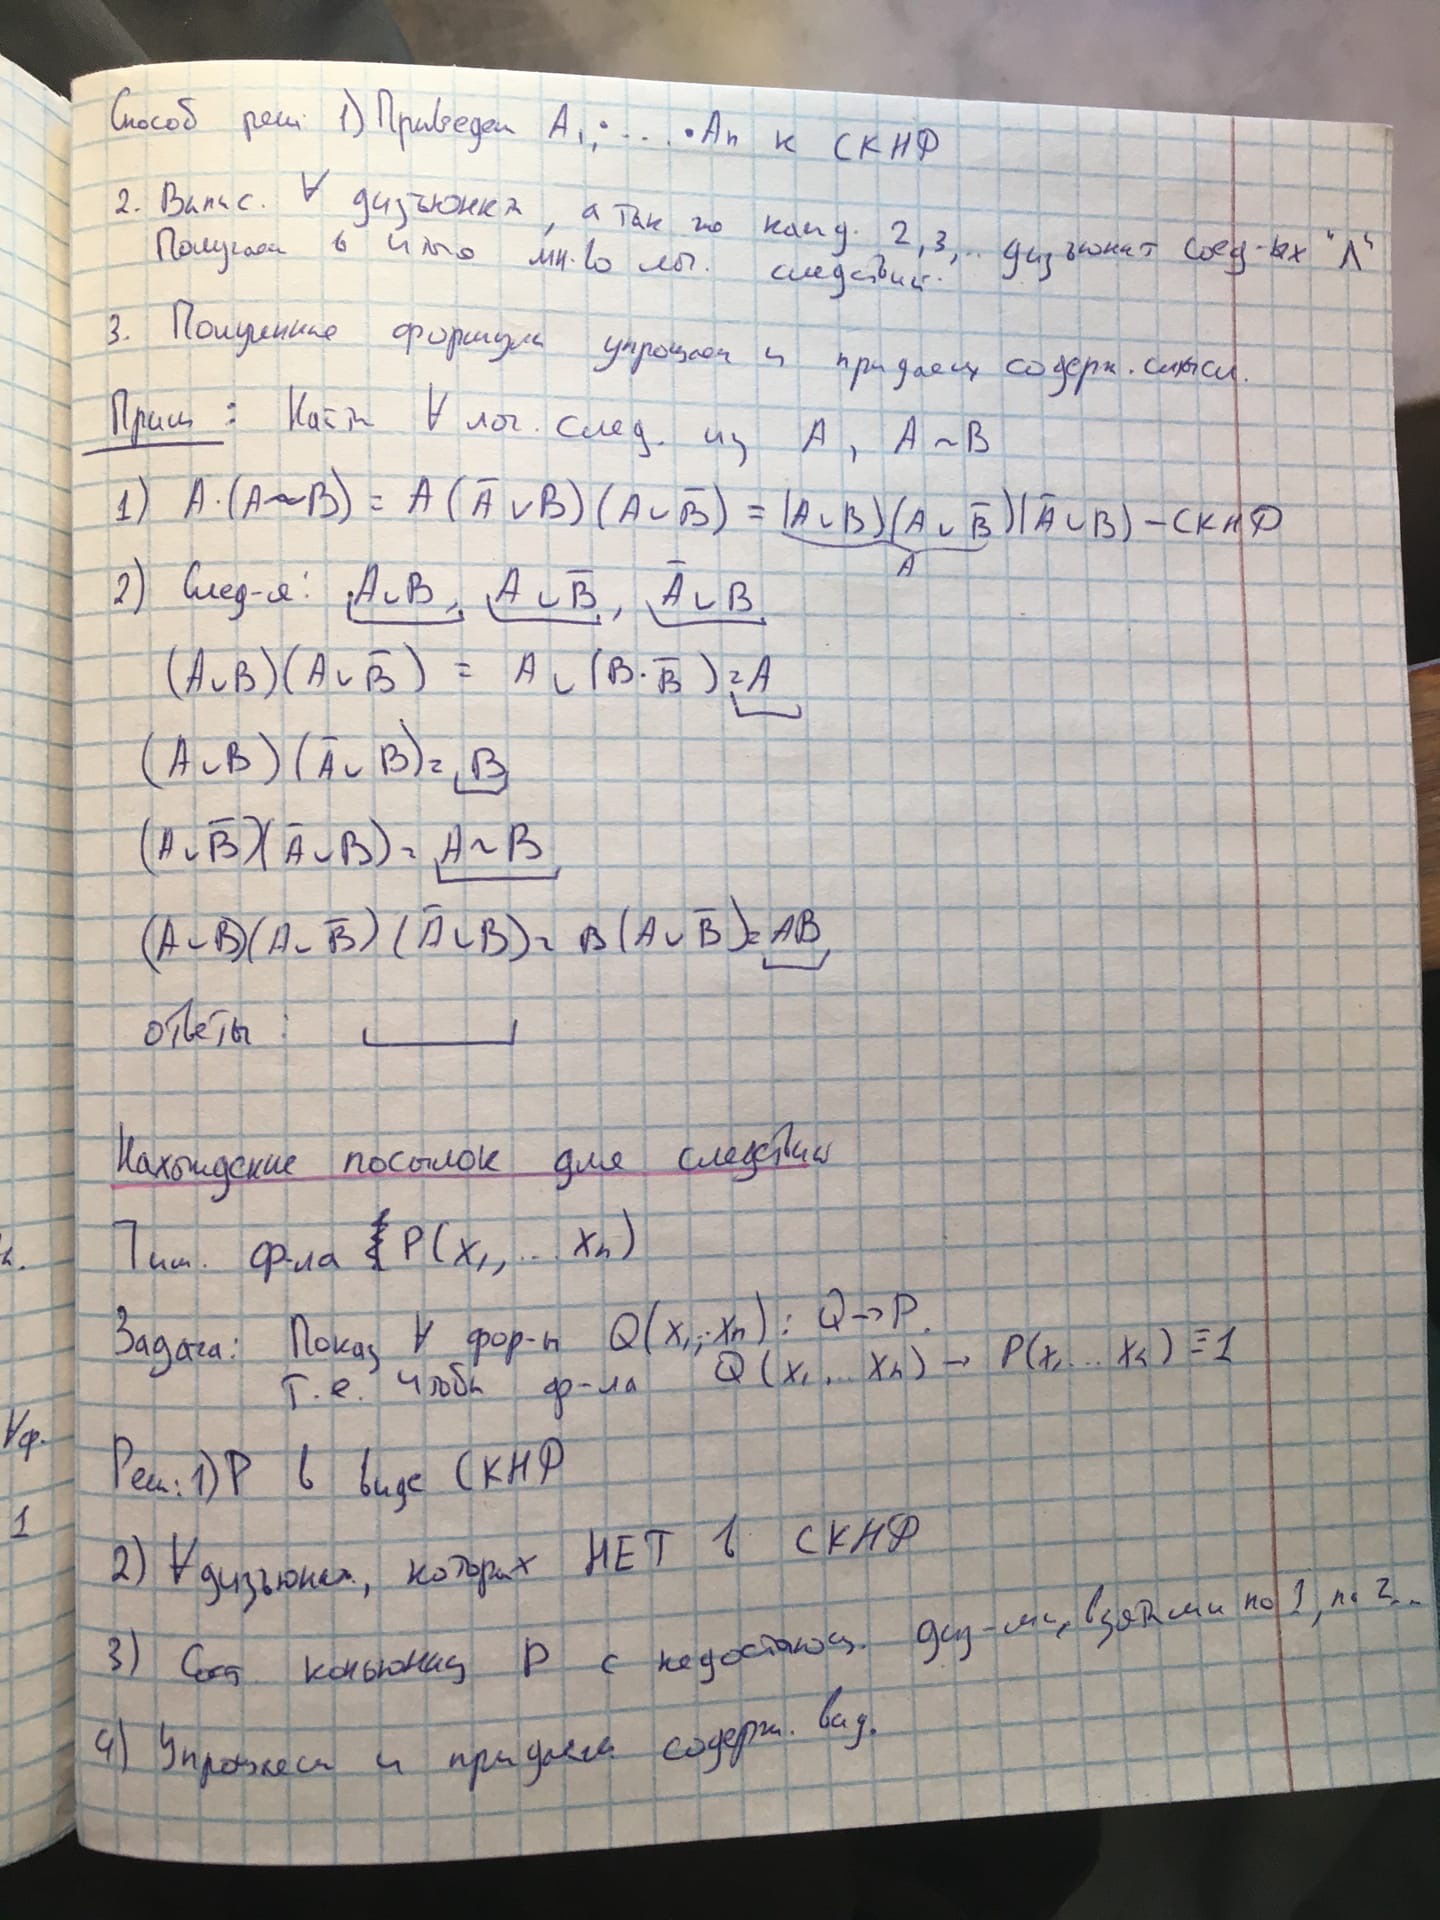 Способ реш: 1) Приведем A₁, · ... · Aₙ к СКНФ
2. Выпис. ∀ дизъюнкт, а так же кажд. 2, 3, .. дизъюнкт соед-ых "Λ"
Получаем в итоге мн.во лог. следствий.
3. Полученные формулы упрощаем и придаем содерж. смысл.
Прим: Найти ∀ лог. след. из A, A ~ B
1) A·(A~B) = A(A̅ ∨ B)(A ∨ B̅) = (A ∨ B)(A ∨ B̅)(A̅ ∨ B) – СКНФ
A
2) След-я: A ∨ B, A ∨ B̅, A̅ ∨ B
(A ∨ B)(A ∨ B̅) = A ∨ (B·B̅) = A
(A ∨ B)(A̅ ∨ B) = B
(A ∨ B̅)(A̅ ∨ B) = A ~ B
(A ∨ B)(A ∨ B̅)(A̅ ∨ B) = B(A ∨ B̅) = AB
ответы:
Нахождение посылок для следствия
ф-ла P(x₁, ... xₙ)
Задача: Показ ∀ фор-ы Q(x₁,..xₙ): Q → P.
т.е. чтобы ф-ла Q(x₁, ... xₙ) → P(x₁ ... xₙ) ≡ 1
∀ф.
Реш: 1) P в виде СКНФ
1
2) ∀ дизъюнкт, которых НЕТ в СКНФ
3) Сост. конъюнкц P с недостающ. диз-ми, взятыми по 1, по 2...
4) Упрощаем и придаем содерж. вид.